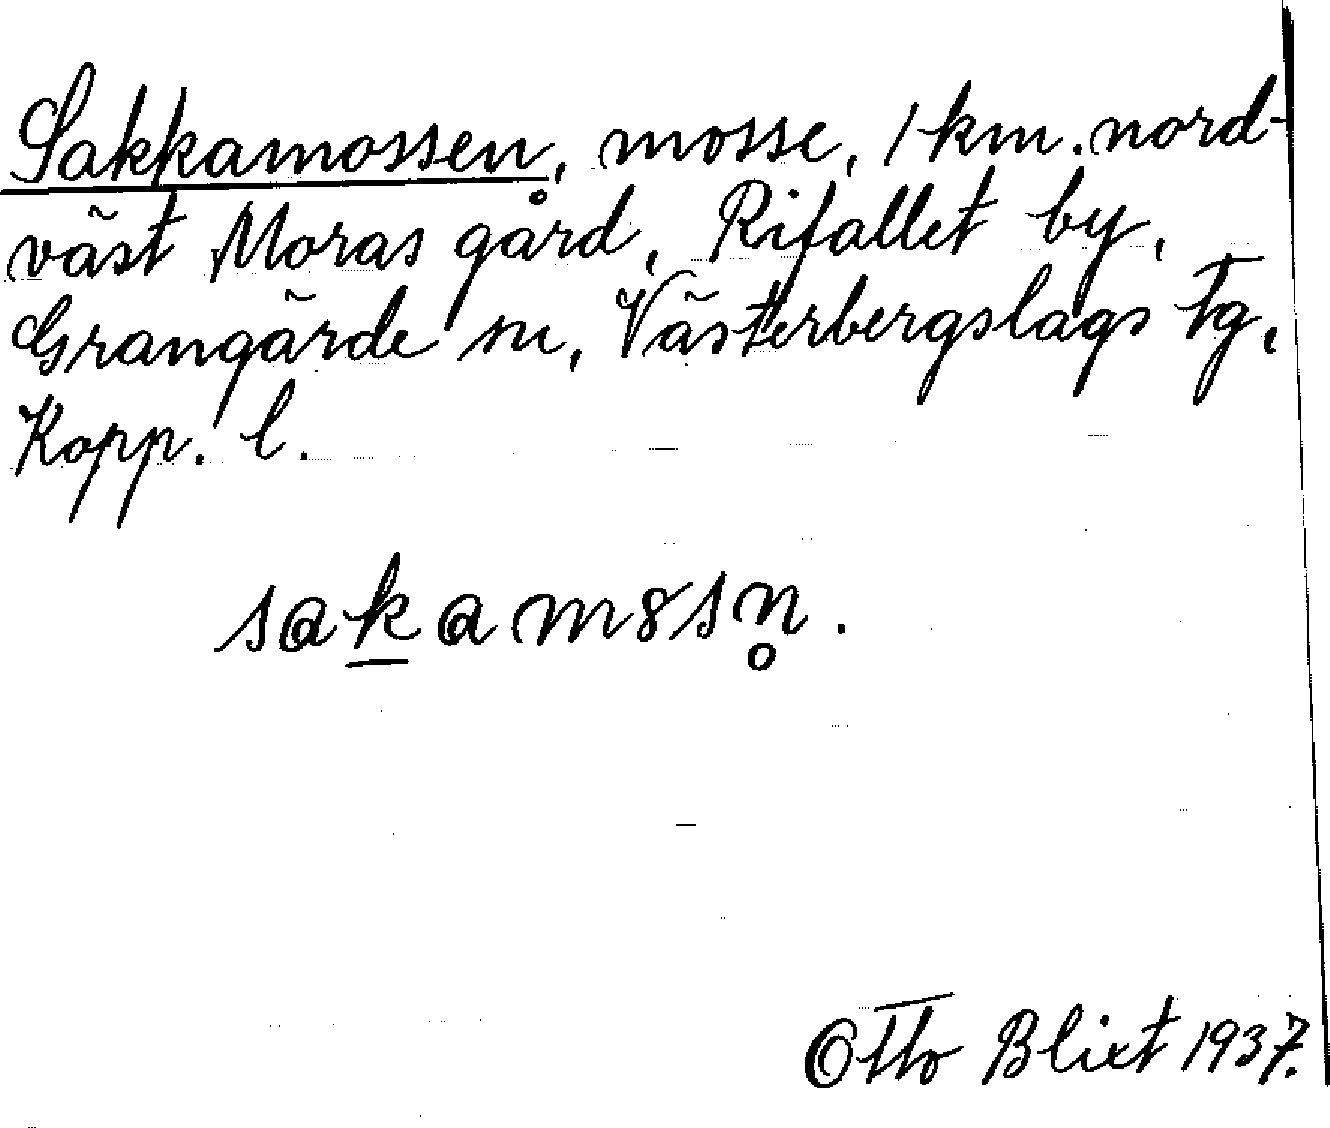 Sakkamossen, mosse, 1 km. nord-
väst Moras gård, Rifallet by,
Grangärde sn, Västerbergslags tg,
Kopp. l.
sak̲amɞsn̥.
Otto Blixt 1937.